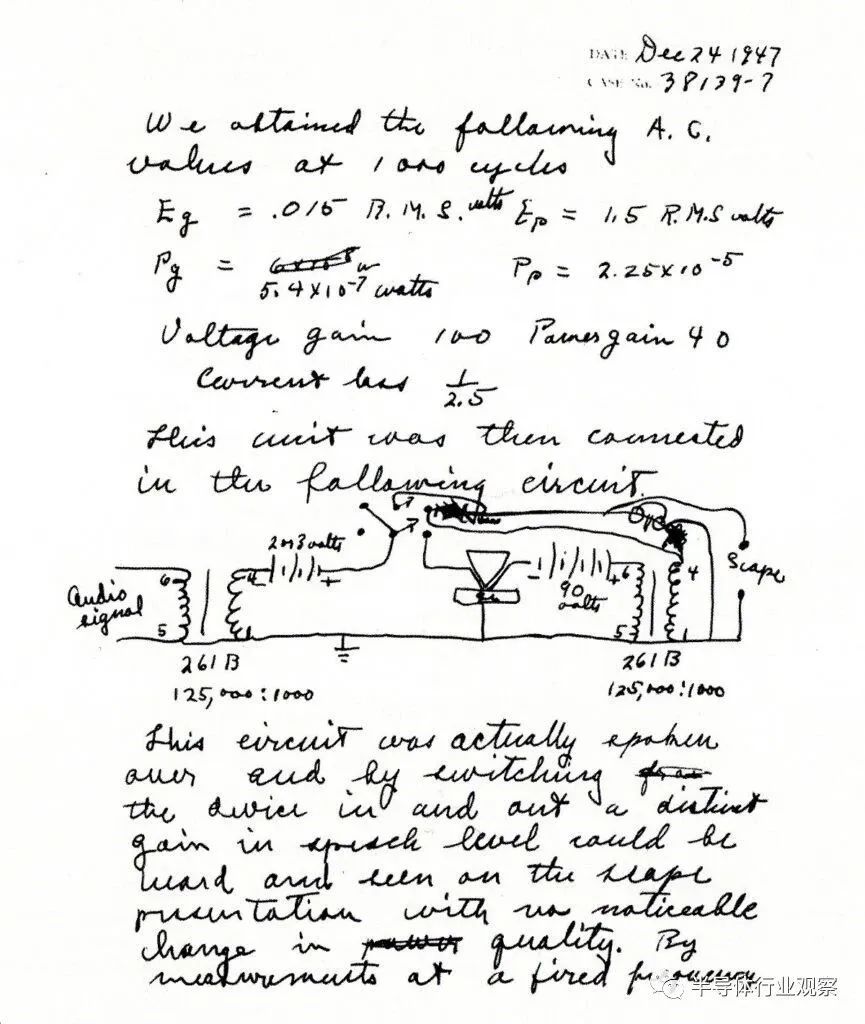 DATE Dec 24 1947
CASE No. 38139-7
We obtained the following A. C.
values at 1000 cycles
Eg = .015 R. M. S. volts Ep = 1.5 R.M.S volts
Pg = 5.4 x 10⁻⁷ watts Pp = 2.25 x 10⁻⁵
Voltage gain 100 Power gain 40
Current loss 1/2.5
This unit was then connected
in the following circuit.
2 or 3 volts
Audio signal
6
5
4
1
- +
- +
90 volts
6
5
4
1
Scope
261B
125,000:1000
261B
125,000:1000
This circuit was actually spoken
over and by switching
the device in and out a distinct
gain in speech level could be
heard and seen on the scope
presentation with no noticeable
change in quality. By
measurements at a fixed frequency
半导体行业观察